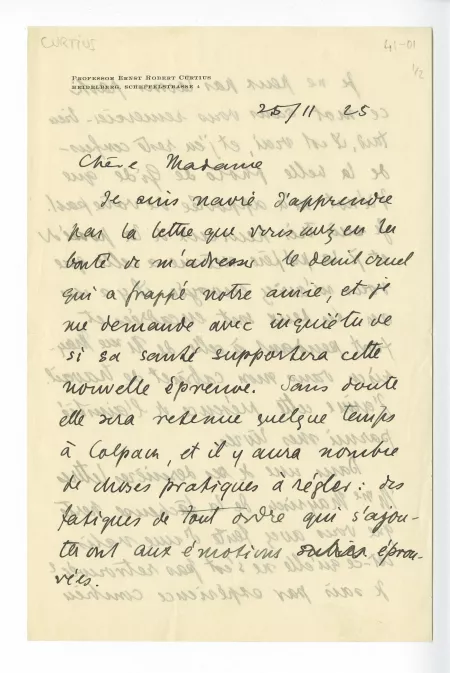 CURTIUS
41-01
1/2
PROFESSOR ERNST ROBERT CURTIUS
HEIDELBERG, SCHEFFELSTRASSE 4
25/11 25
Chère Madame
Je suis navré d'apprendre
par la lettre que vous avez eu la
bonté de m'adresser le deuil cruel
qui a frappé notre amie, et je
me demande avec inquiétude
si sa santé supportera cette
nouvelle épreuve. Sans doute
elle sera retenue quelque temps
à Colpach, et il y aura nombre
de choses pratiques à régler : des
fatigues de tout ordre qui s'ajou-
teront aux émotions éprou-
vées.